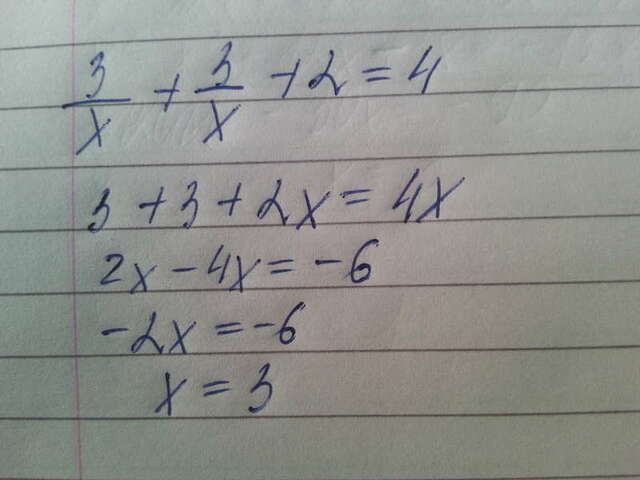 3/x + 3/x + 2 = 4
3 + 3 + 2x = 4x
2x - 4x = -6
-2x = -6
x = 3